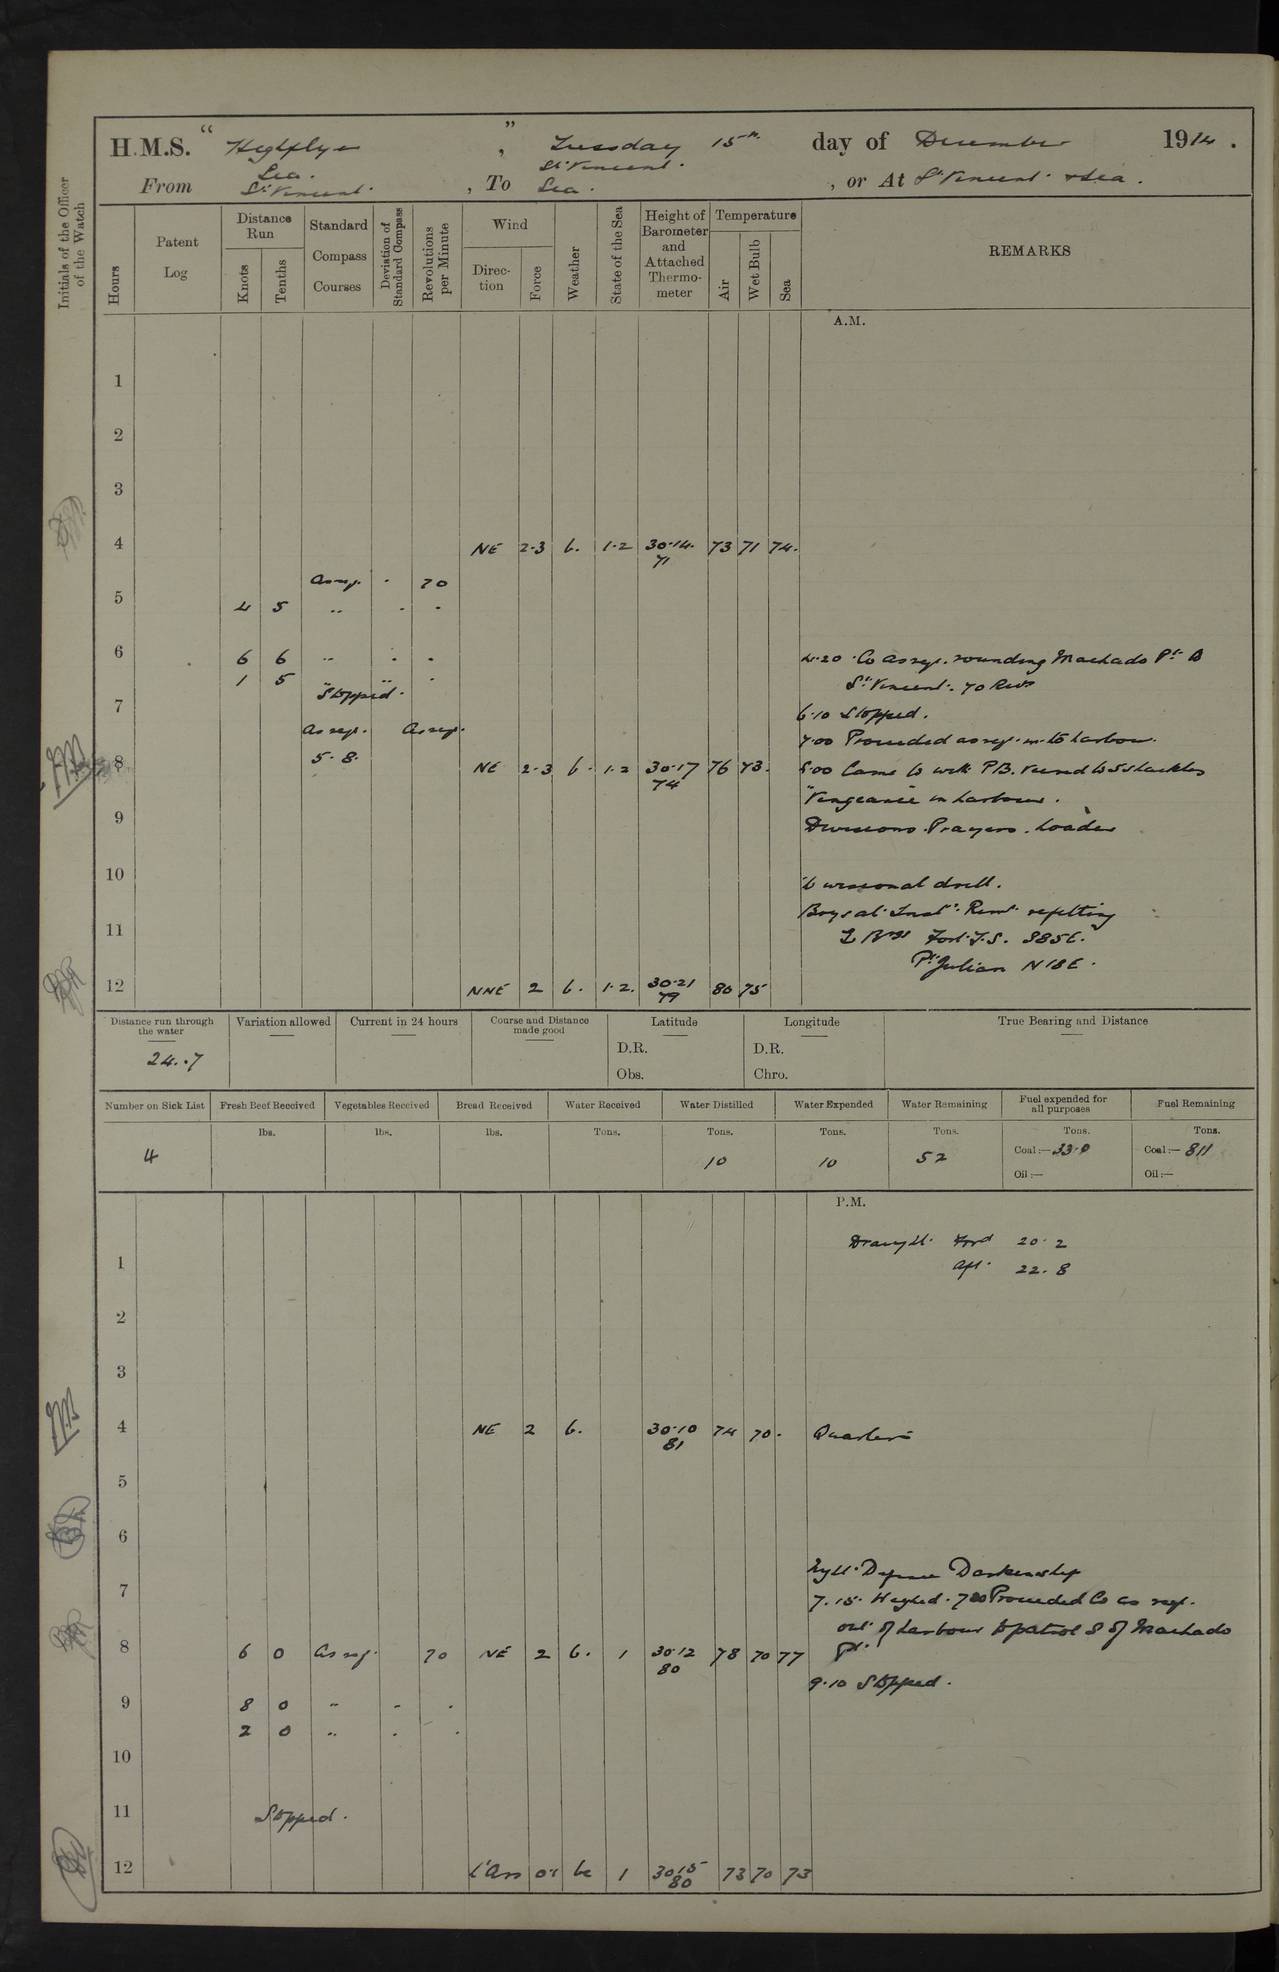 H.M.S. "Highflyer", Tuesday 15th. day of December 1914.
Sea. St Vincent.
From St Vincent. , To Sea. , or At St Vincent & Sea.
Initials of the Officer of the Watch
Hours
Patent Log
Distance Run
Knots Tenths
Standard Compass Courses
Deviation of Standard Compass
Revolutions per Minute
Wind
Direction Force
Weather
State of the Sea
Height of Barometer and Attached Thermometer
Temperature
Air Wet Bulb Sea
REMARKS
A.M.
1
2
3
4 NE 2-3 b. 1-2 30.14. 73 71 74.
71
As req. - 70
5 4 5 " - -
6 6 6 " - - 4.20 Co as req. rounding Machado Pt
1 5 " " - St Vincent. 70 Revs
"Stopped".
7 6.10 Stopped.
As req. As req.
7.00 Proceeded as req. into harbour.
5.8.
8 NE 2-3 b. 1-2 30.17 76 73. 8.00 Came to with PB. veered to 5 shackles
74
"Vengeance" in harbour.
9 Divisions. Prayers. Loader
10 & divisional drill.
Boys at Inst.
11 refitting
S85E.
Pt Julian N18E.
12 NNE 2 b. 1-2. 30.21 80 75
79
Distance run through the water Variation allowed Current in 24 hours Course and Distance made good Latitude Longitude True Bearing and Distance
24.7 D.R. D.R.
Obs. Chro.
Number on Sick List Fresh Beef Received Vegetables Received Bread Received Water Received Water Distilled Water Expended Water Remaining Fuel expended for all purposes Fuel Remaining
lbs. lbs. lbs. Tons. Tons. Tons. Tons. Tons. Tons.
4 10 10 52 Coal:— 33.0 Coal:— 811
Oil:— Oil:—
P.M.
Draught. Ford 20.2
1 Aft. 22.8
2
3
4 NE 2 b. 30.10 74 70. Quarters
81
5
6
Night Defence Darken ship
7 7.15. Weighed. 7.20 Proceeded Co as req.
out of harbour to patrol S of Machado
8 6 0 As req. 70 NE 2 b. 1 30.12 78 70 77 Pt.
80
9.10 Stopped.
9 8 0 " - -
2 0 " - -
10
11 Stopped.
12 0-1 bc 1 30.15 73 70 73
80